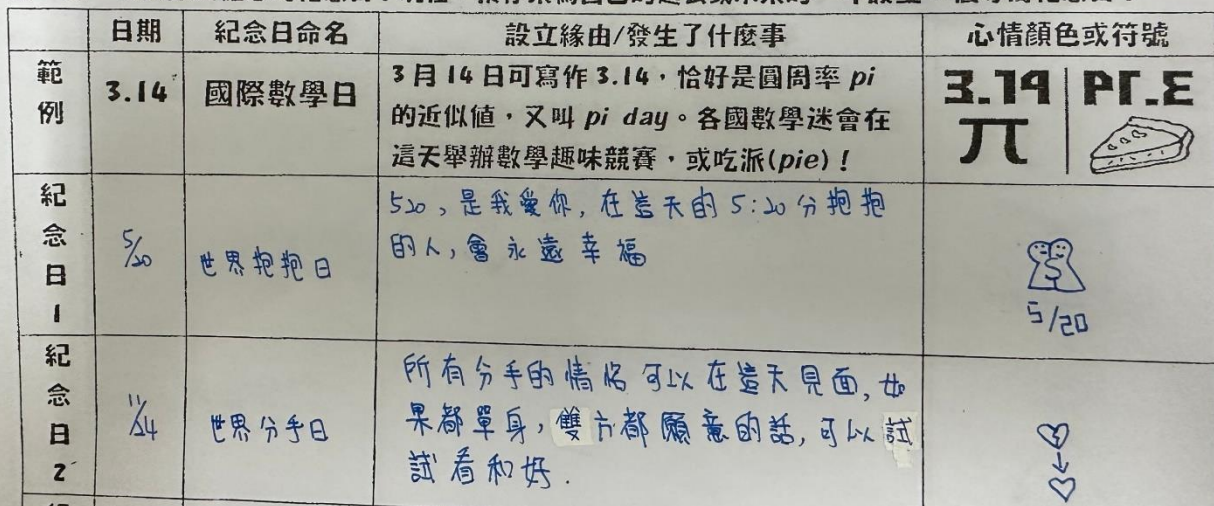 日期 紀念日命名 設立緣由/發生了什麼事 心情顏色或符號
範例
3.14
國際數學日
3月14日可寫作3.14，恰好是圓周率 pi
的近似值，又叫 pi day。各國數學迷會在
這天舉辦數學趣味競賽，或吃派(pie)！
3.14
π
PI.E
紀念日1
5/20
世界抱抱日
520，是我愛你，在這天的5:20分抱抱
的人，會永遠幸福
5/20
紀念日2
11/24
世界分手日
所有分手的情侶可以在這天見面，如
果都單身，雙方都願意的話，可以試
試看和好.